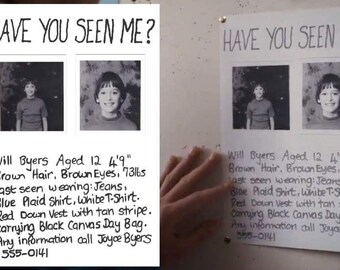 HAVE YOU SEEN ME?
Will Byers Aged 12 4'9"
Brown Hair, Brown Eyes, 73lbs
last seen wearing: Jeans,
Blue Plaid Shirt, White T-Shirt.
Red Down Vest with tan stripe.
Carrying Black Canvas Day Bag.
Any information call Joyce Byers
555-0141
HAVE YOU SEEN
Will Byers Aged 12 4'
Brown Hair, Brown Eyes,
last seen wearing: Jean
Blue Plaid Shirt, White T-
Red Down Vest with tan s
Carrying Black Canvas Day
Any information call Joyc
555-0141